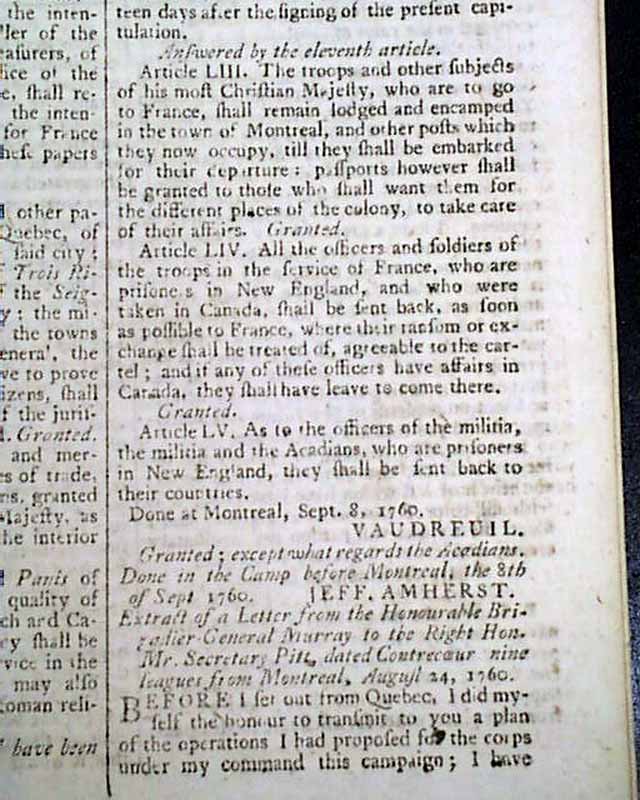 the inten-
ler of the
easurers, of
fice of the
e, shall re-
the inten-
for France
hese papers
other pa-
Quebec, of
said city;
Trois Ri-
f the Seig-
y: the mi-
the towns
enera', the
ve to prove
izens, shall
f the juris-
d. Granted.
and mer-
es of trade,
ns, granted
Majesty, as
the interior
Panis of
quality of
ch and Ca-
ey shall be
rvice in the
may also
Roman reli-
have been
teen days after the signing of the present capi-
tulation.
Answered by the eleventh article.
Article LIII. The troops and other subjects
of his most Christian Majesty, who are to go
to France, shall remain lodged and encamped
in the town of Montreal, and other posts which
they now occupy, till they shall be embarked
for their departure: passports however shall
be granted to those who shall want them for
the different places of the colony, to take care
of their affairs. Granted.
Article LIV. All the officers and soldiers of
the troops in the service of France, who are
prisoners in New England, and who were
taken in Canada, shall be sent back, as soon
as possible to France, where their ransom or ex-
change shall be treated of, agreeable to the car-
tel; and if any of these officers have affairs in
Canada, they shall have leave to come there.
Granted.
Article LV. As to the officers of the militia,
the militia and the Acadians, who are prisoners
in New England, they shall be sent back to
their countries.
Done at Montreal, Sept. 8, 1760.
VAUDREUIL.
Granted; except what regards the Acadians.
Done in the Camp before Montreal, the 8th
of Sept 1760. JEFF. AMHERST.
Extract of a Letter from the Honourable Bri-
gadier-General Murray to the Right Hon.
Mr. Secretary Pitt, dated Contrecœur nine
leagues from Montreal, August 24, 1760.
BEFORE I set out from Quebec, I did my-
self the honour to transmit to you a plan
of the operations I had proposed for the corps
under my command this campaign; I have